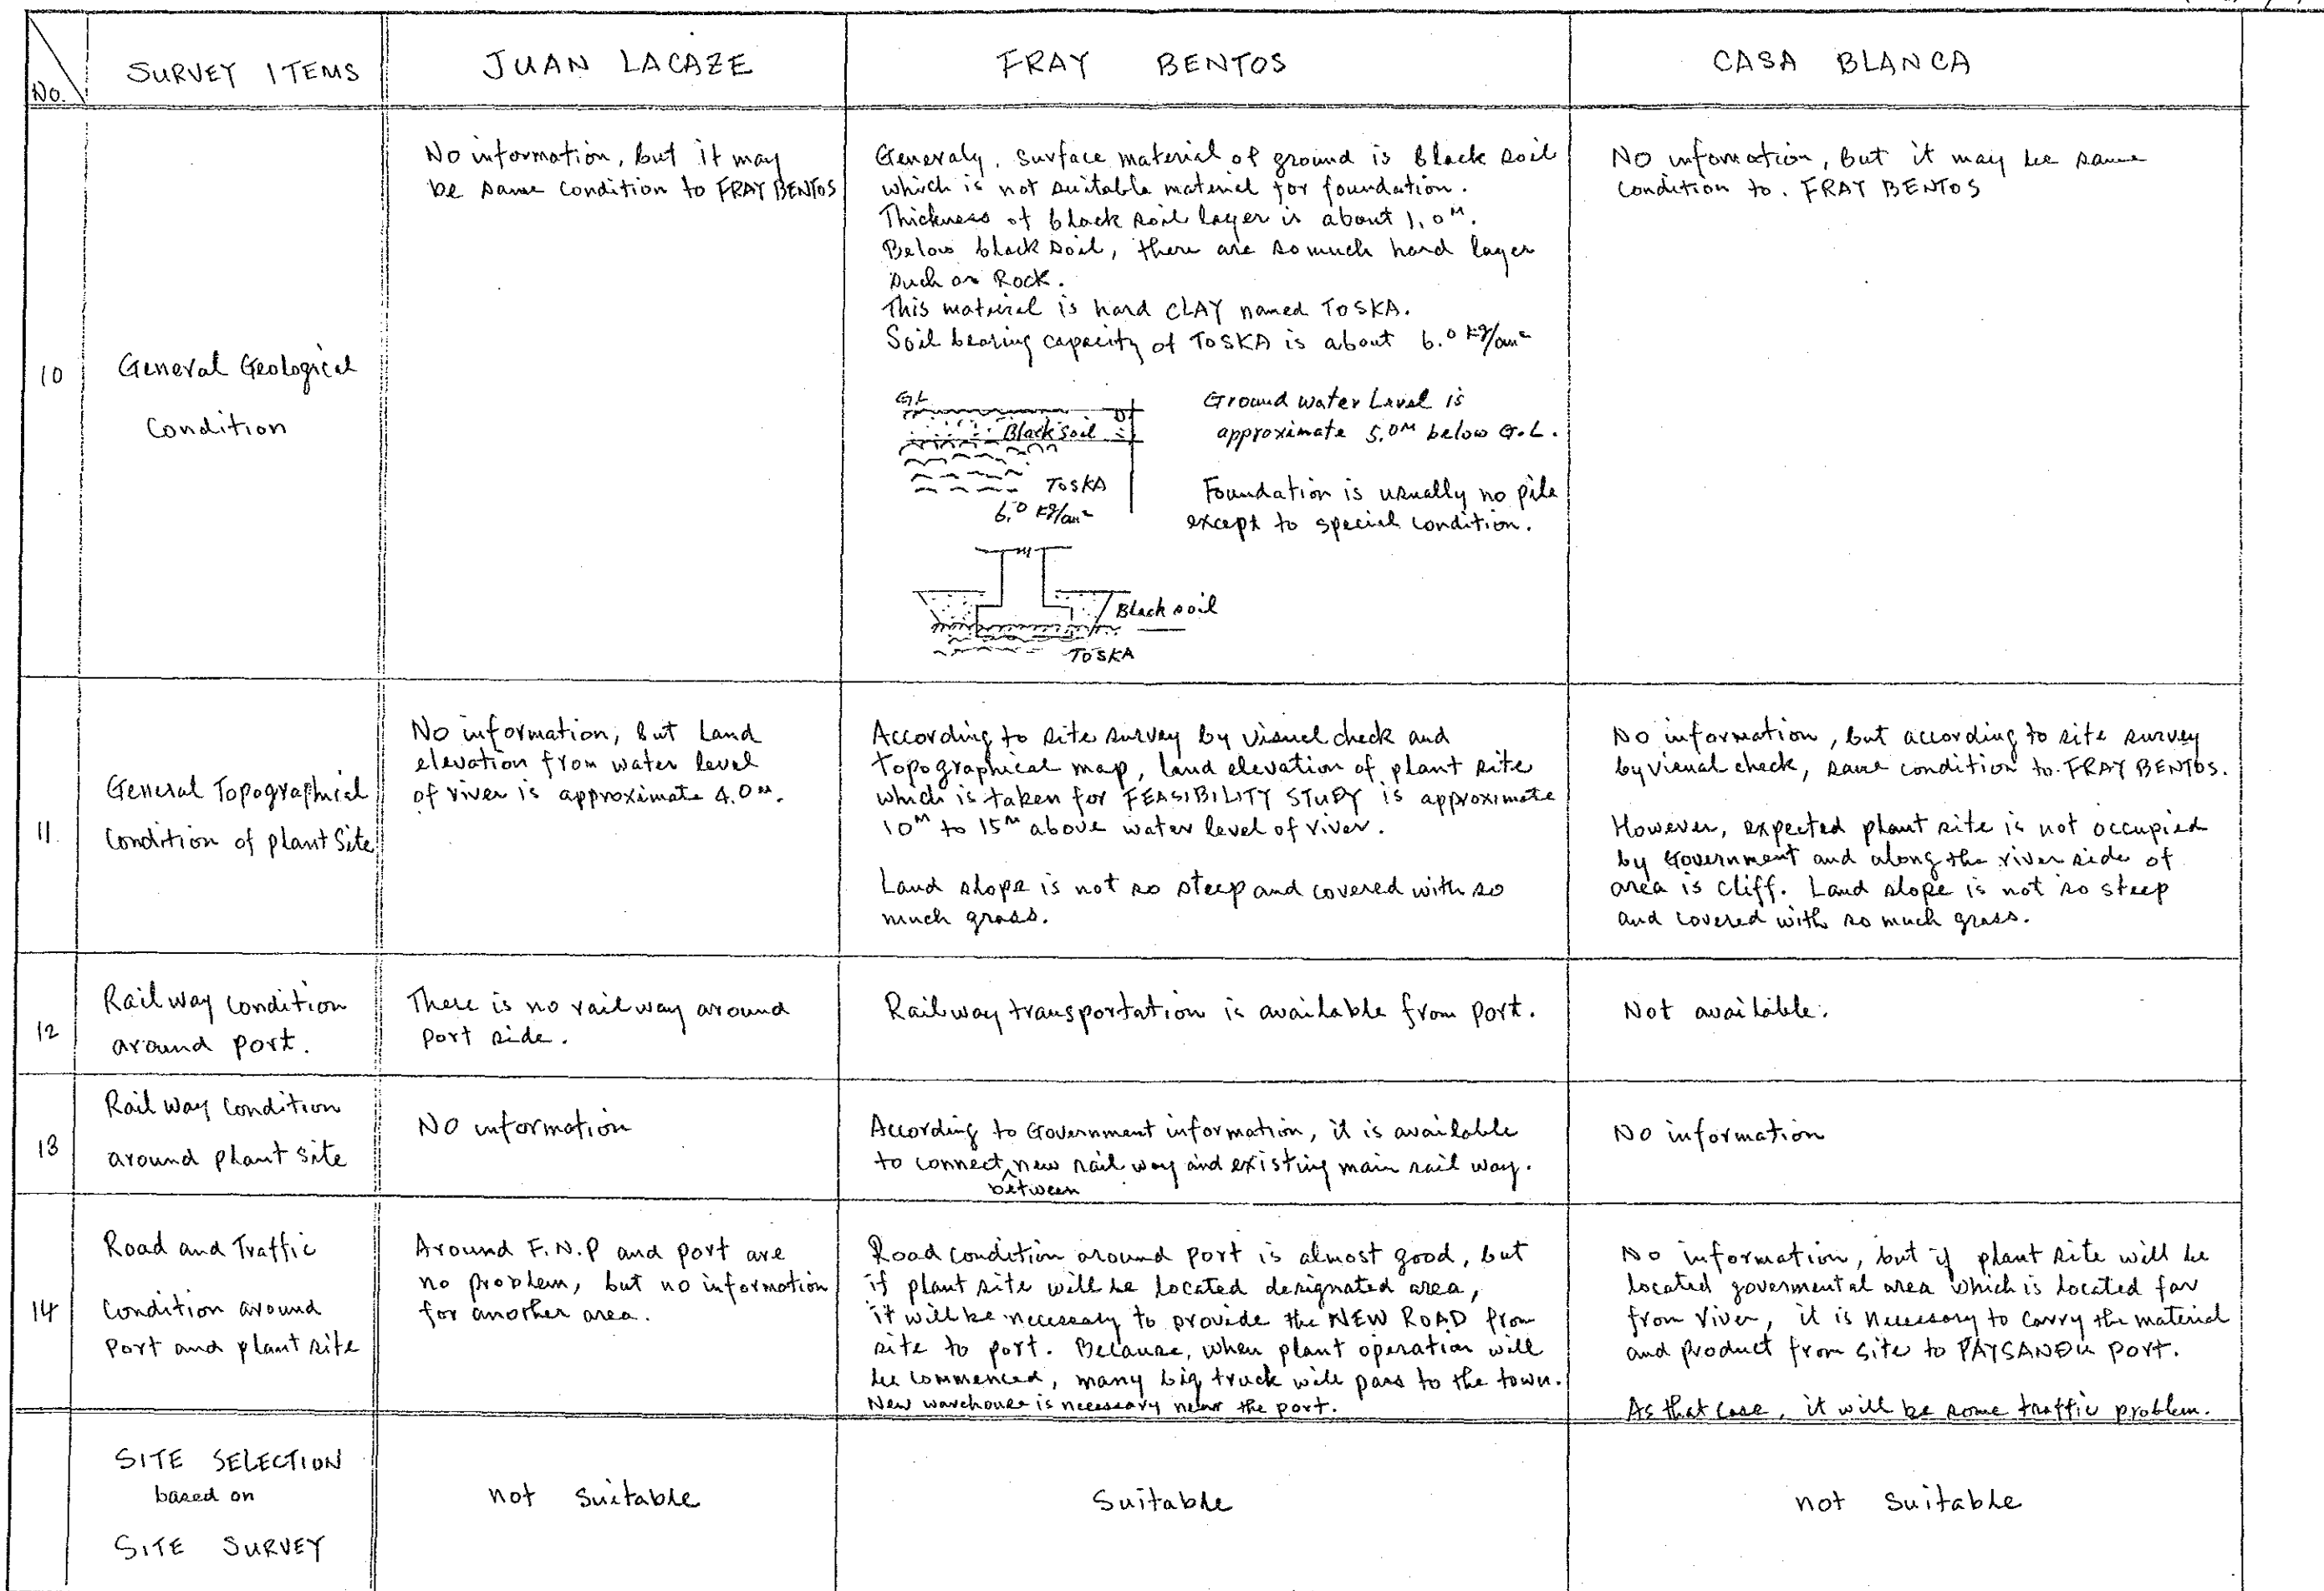 No.
SURVEY ITEMS
JUAN LACAZE
FRAY BENTOS
CASA BLANCA
10
General Geological
Condition
No information, but it may
be same condition to FRAY BENTOS
Generaly, surface material of ground is black soil
which is not suitable material for foundation.
Thickness of black soil layer is about 1.0M.
Below black soil, there are so much hard layer
such as Rock.
This material is hard CLAY named TOSKA.
Soil bearing capacity of TOSKA is about 6.0 kg/cm²
G.L
Black soil
TOSKA
6.0 kg/cm²
Ground water Level is
approximate 5.0M below G.L.
Foundation is usually no pile
except to special condition.
Black soil
TOSKA
No information, but it may be same
condition to. FRAY BENTOS
11.
General Topographical
Condition of plant Site
No information, but Land
elevation from water level
of river is approximate 4.0M.
According to site survey by visual check and
topographical map, land elevation of plant site
which is taken for FEASIBILITY STUDY is approximate
10M to 15M above water level of river.
Land slope is not so steep and covered with so
much grass.
No information, but according to site survey
by visual check, same condition to FRAY BENTOS.
However, expected plant site is not occupied
by Government and along the river side of
area is cliff. Land slope is not so steep
and covered with so much grass.
12
Railway condition
around port.
There is no railway around
port side.
Railway transportation is available from port.
Not available.
13
Railway Condition
around plant site
No information
According to Government information, it is available
to connect between new rail way and existing main rail way.
No information
14
Road and Traffic
Condition around
Port and plant site
Around F.N.P and port are
no problem, but no information
for another area.
Road condition around port is almost good, but
if plant site will be located designated area,
it will be necessary to provide the NEW ROAD from
site to port. Because, when plant operation will
be commenced, many big truck will pass to the town.
New warehouse is necessary near the port.
No information, but if plant site will be
located govermental area which is located far
from river, it is necessary to carry the material
and product from site to PAYSANDU port.
As that case, it will be some traffic problem.
SITE SELECTION
based on
SITE SURVEY
not suitable
Suitable
not suitable